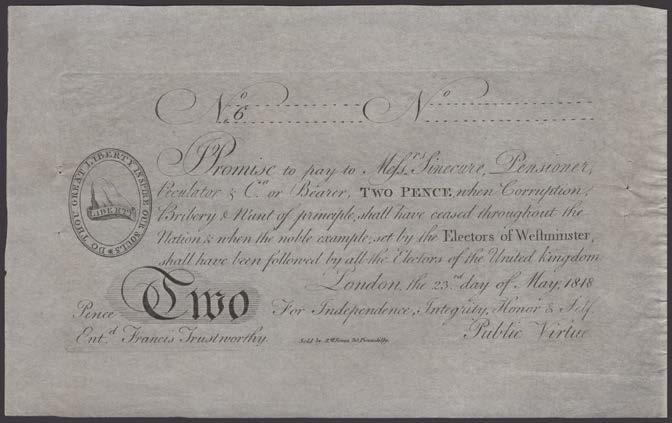 No 6 No
I Promise to pay to Messrs Sinecure, Pensioner,
Peculator & Co. or Bearer, TWO PENCE, when Corruption,
Bribery & Want of principle, shall have ceased throughout the
Nation & when the noble example, set by the Electors of Westminster,
shall have been followed by all the Electors of the United Kingdom
London, the 23rd day of May, 1818
Pence Two For Independence, Integrity, Honor & Self.
Entd Francis Trustworthy. Sold by Piccadilly. Public Virtue
DO THOU GREAT LIBERTY INSPIRE OUR SOULS
LIBERTY